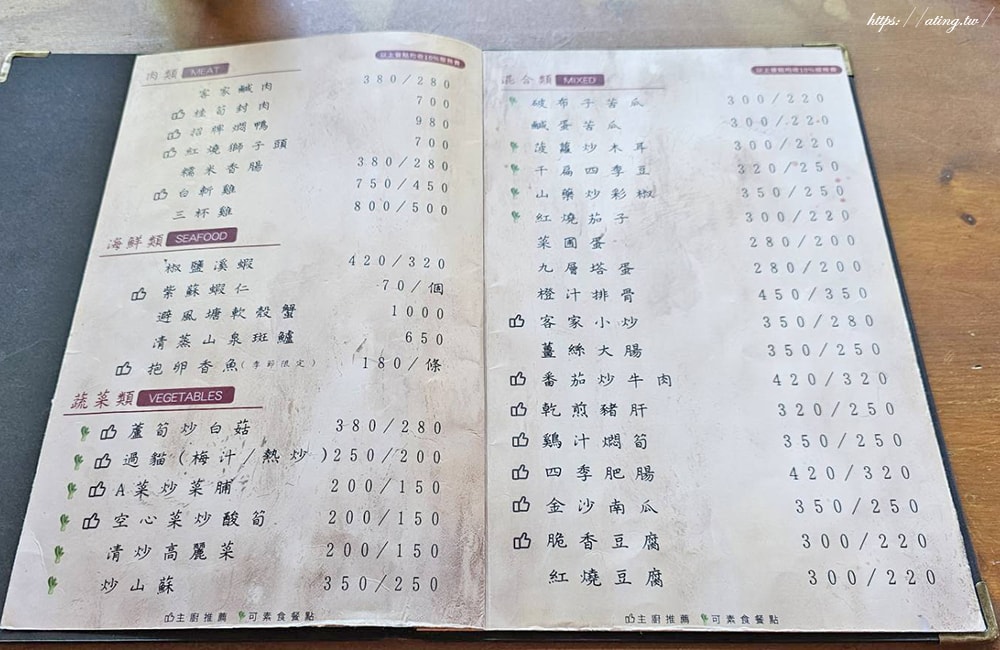 https://ating.tw/
以上餐點均收10%服務費
肉類 MEAT
客家鹹肉 380/280
桂筍封肉 700
招牌燜鴨 980
紅燒獅子頭 700
糯米香腸 380/280
白斬雞 750/450
三杯雞 800/500
海鮮類 SEAFOOD
椒鹽溪蝦 420/320
紫蘇蝦仁 70/個
避風塘軟殼蟹 1000
清蒸山泉斑鱸 650
抱卵香魚(季節限定) 180/條
蔬菜類 VEGETABLES
蘆筍炒白菇 380/280
過貓(梅汁/熱炒) 250/200
A菜炒菜脯 200/150
空心菜炒酸筍 200/150
清炒高麗菜 200/150
炒山蘇 350/250
主廚推薦 可素食餐點
以上餐點均收10%服務費
混合類 MIXED
破布子苦瓜 300/220
鹹蛋苦瓜 300/220
菠蘿炒木耳 300/220
干扁四季豆 320/250
山藥炒彩椒 350/250
紅燒茄子 300/220
菜圃蛋 280/200
九層塔蛋 280/200
橙汁排骨 450/350
客家小炒 350/280
薑絲大腸 350/250
番茄炒牛肉 420/320
乾煎豬肝 320/250
鷄汁燜筍 350/250
四季肥腸 420/320
金沙南瓜 350/250
脆香豆腐 300/220
紅燒豆腐 300/220
主廚推薦 可素食餐點